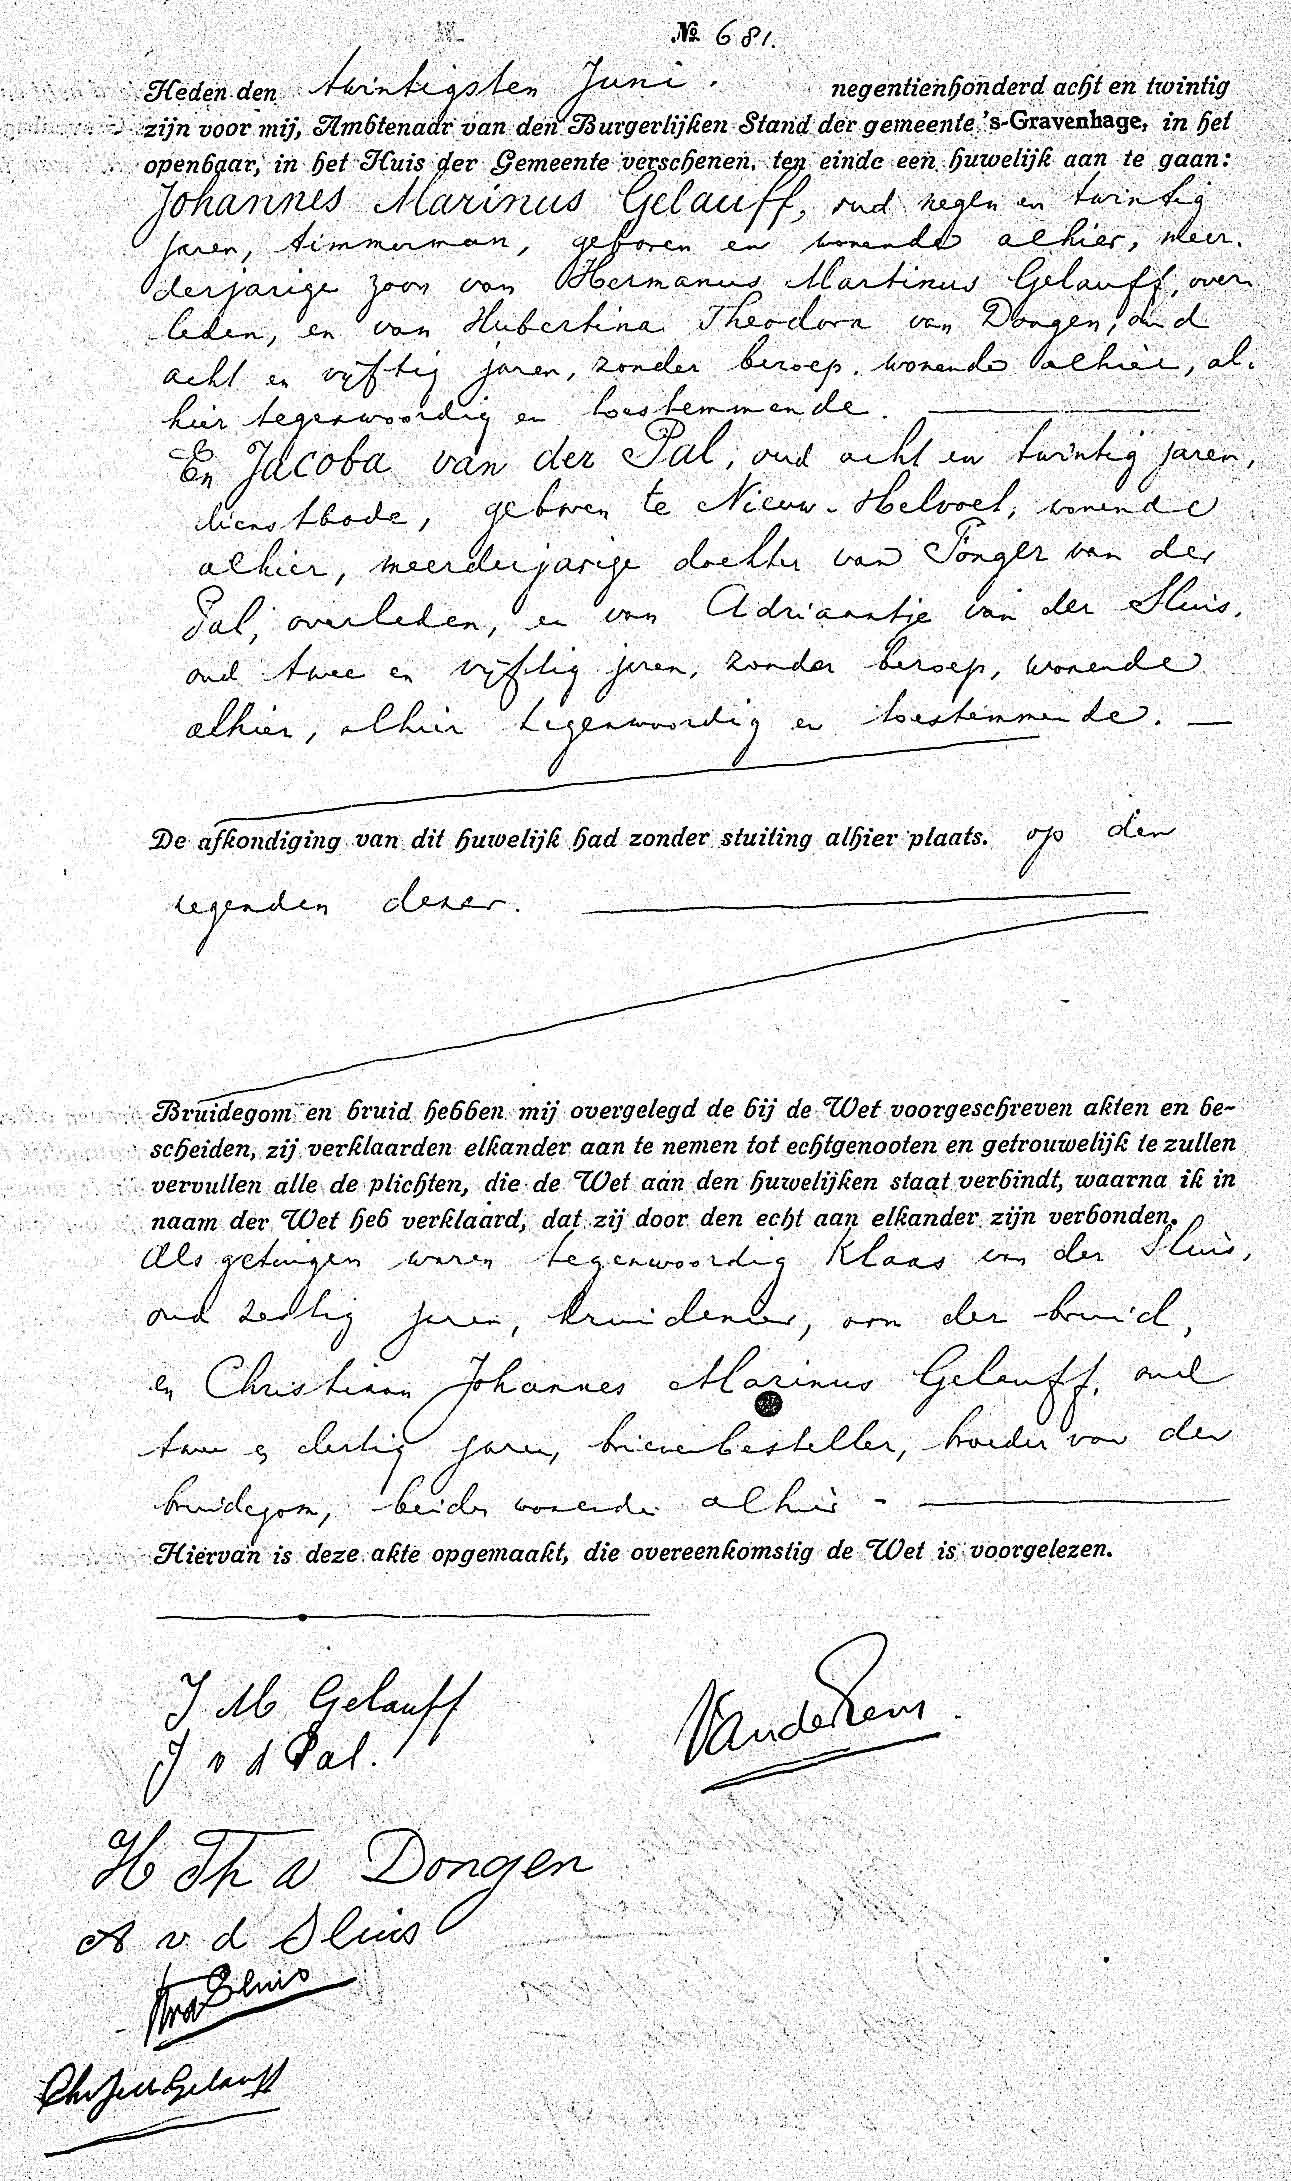 № 681.
Heden den twintigsten Juni. negentienhonderd acht en twintig
zijn voor mij, Ambtenaar van den Burgerlijken Stand der gemeente 's-Gravenhage, in het
openbaar, in het Huis der Gemeente verschenen, ten einde een huwelijk aan te gaan:
Johannes Marinus Gelauff, oud negen en twintig
jaren, timmerman, geboren en wonende alhier, meer-
derjarige zoon van Hermanus Martinus Gelauff, over-
leden, en van Hubertina Theodora van Dongen, oud
acht en vijftig jaren, zonder beroep, wonende alhier, al-
hier tegenwoordig en toestemmende.
En Jacoba van der Pal, oud acht en twintig jaren,
dienstbode, geboren te Nieuw-Helvoet, wonende
alhier, meerderjarige dochter van Fonger van der
Pal, overleden, en van Adriaantje van der Sluis,
oud twee en vijftig jaren, zonder beroep, wonende
alhier, alhier tegenwoordig en toestemmende.
De afkondiging van dit huwelijk had zonder stuiting alhier plaats. op den
negenden dezer.
Bruidegom en bruid hebben mij overgelegd de bij de Wet voorgeschreven akten en be-
scheiden, zij verklaarden elkander aan te nemen tot echtgenooten en getrouwelijk te zullen
vervullen alle de plichten, die de Wet aan den huwelijken staat verbindt, waarna ik in
naam der Wet heb verklaard, dat zij door den echt aan elkander zijn verbonden.
Als getuigen waren tegenwoordig Klaas van der Sluis,
oud zestig jaren, kruidenier, oom der bruid,
en Christiaan Johannes Marinus Gelauff, oud
twee en dertig jaren, brievenbesteller, broeder van den
bruidegom, beiden wonende alhier.
Hiervan is deze akte opgemaakt, die overeenkomstig de Wet is voorgelezen.
J M Gelauff
J v d Pal.
H Th v Dongen
A v d Sluis
K v d Sluis
Chr J M Gelauff